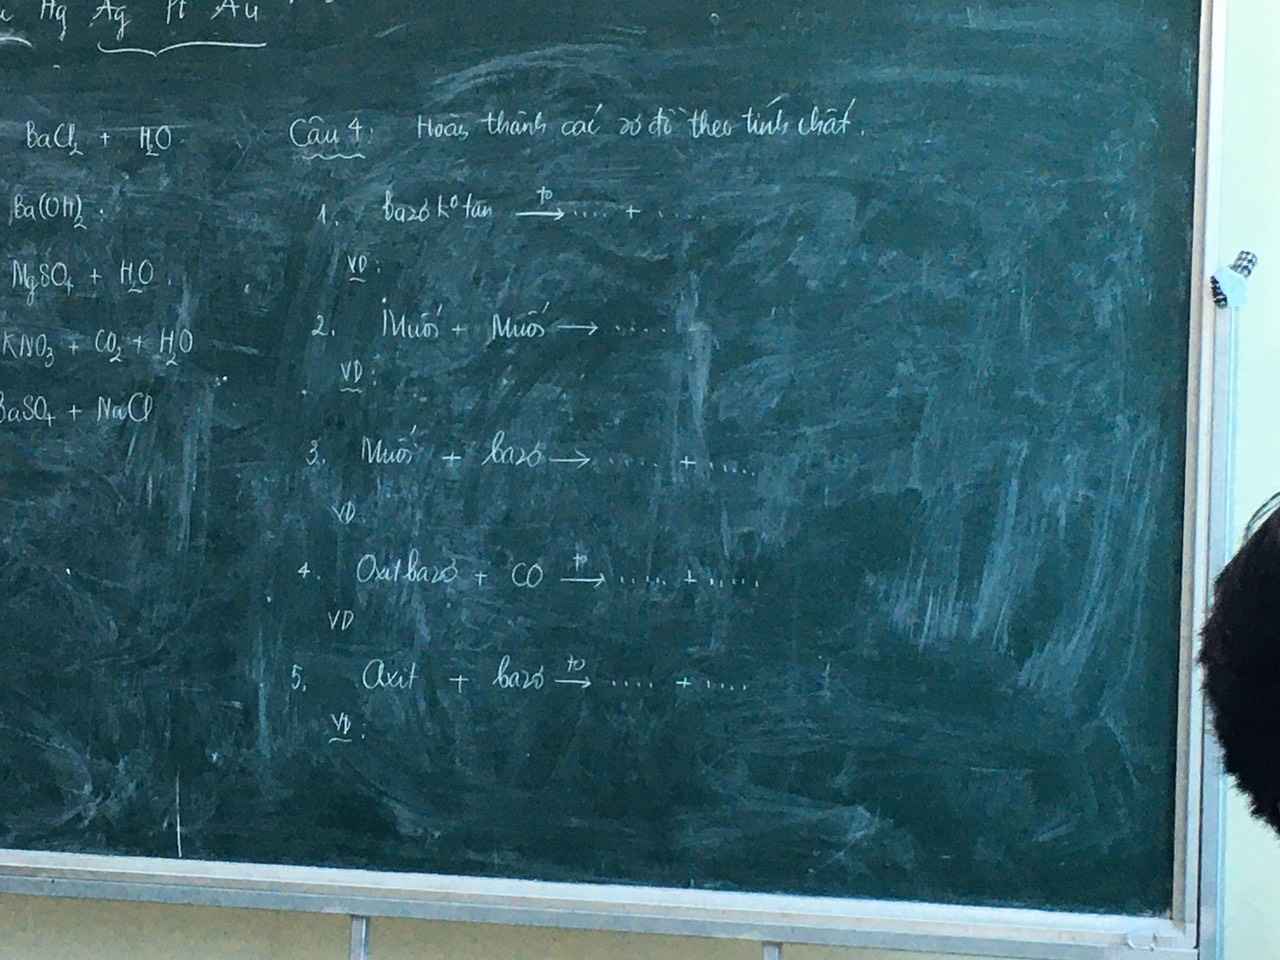 Hg Ag Pt Au
BaCl₂ + H₂O
Ba(OH)₂.
MgSO₄ + H₂O.
KNO₃ + CO₂ + H₂O
BaSO₄ + NaCl
Câu 4: Hoàn thành các sơ đồ theo tính chất.
1. bazơ k⁰ tan t⁰→ .... + ....
VD:
2. Muối + Muối → ....
VD:
3. Muối + bazơ → .... + ....
VD.
4. Oxit bazơ + CO t⁰→ .... + ....
VD
5. Axit + bazơ t⁰→ .... + ....
VD: